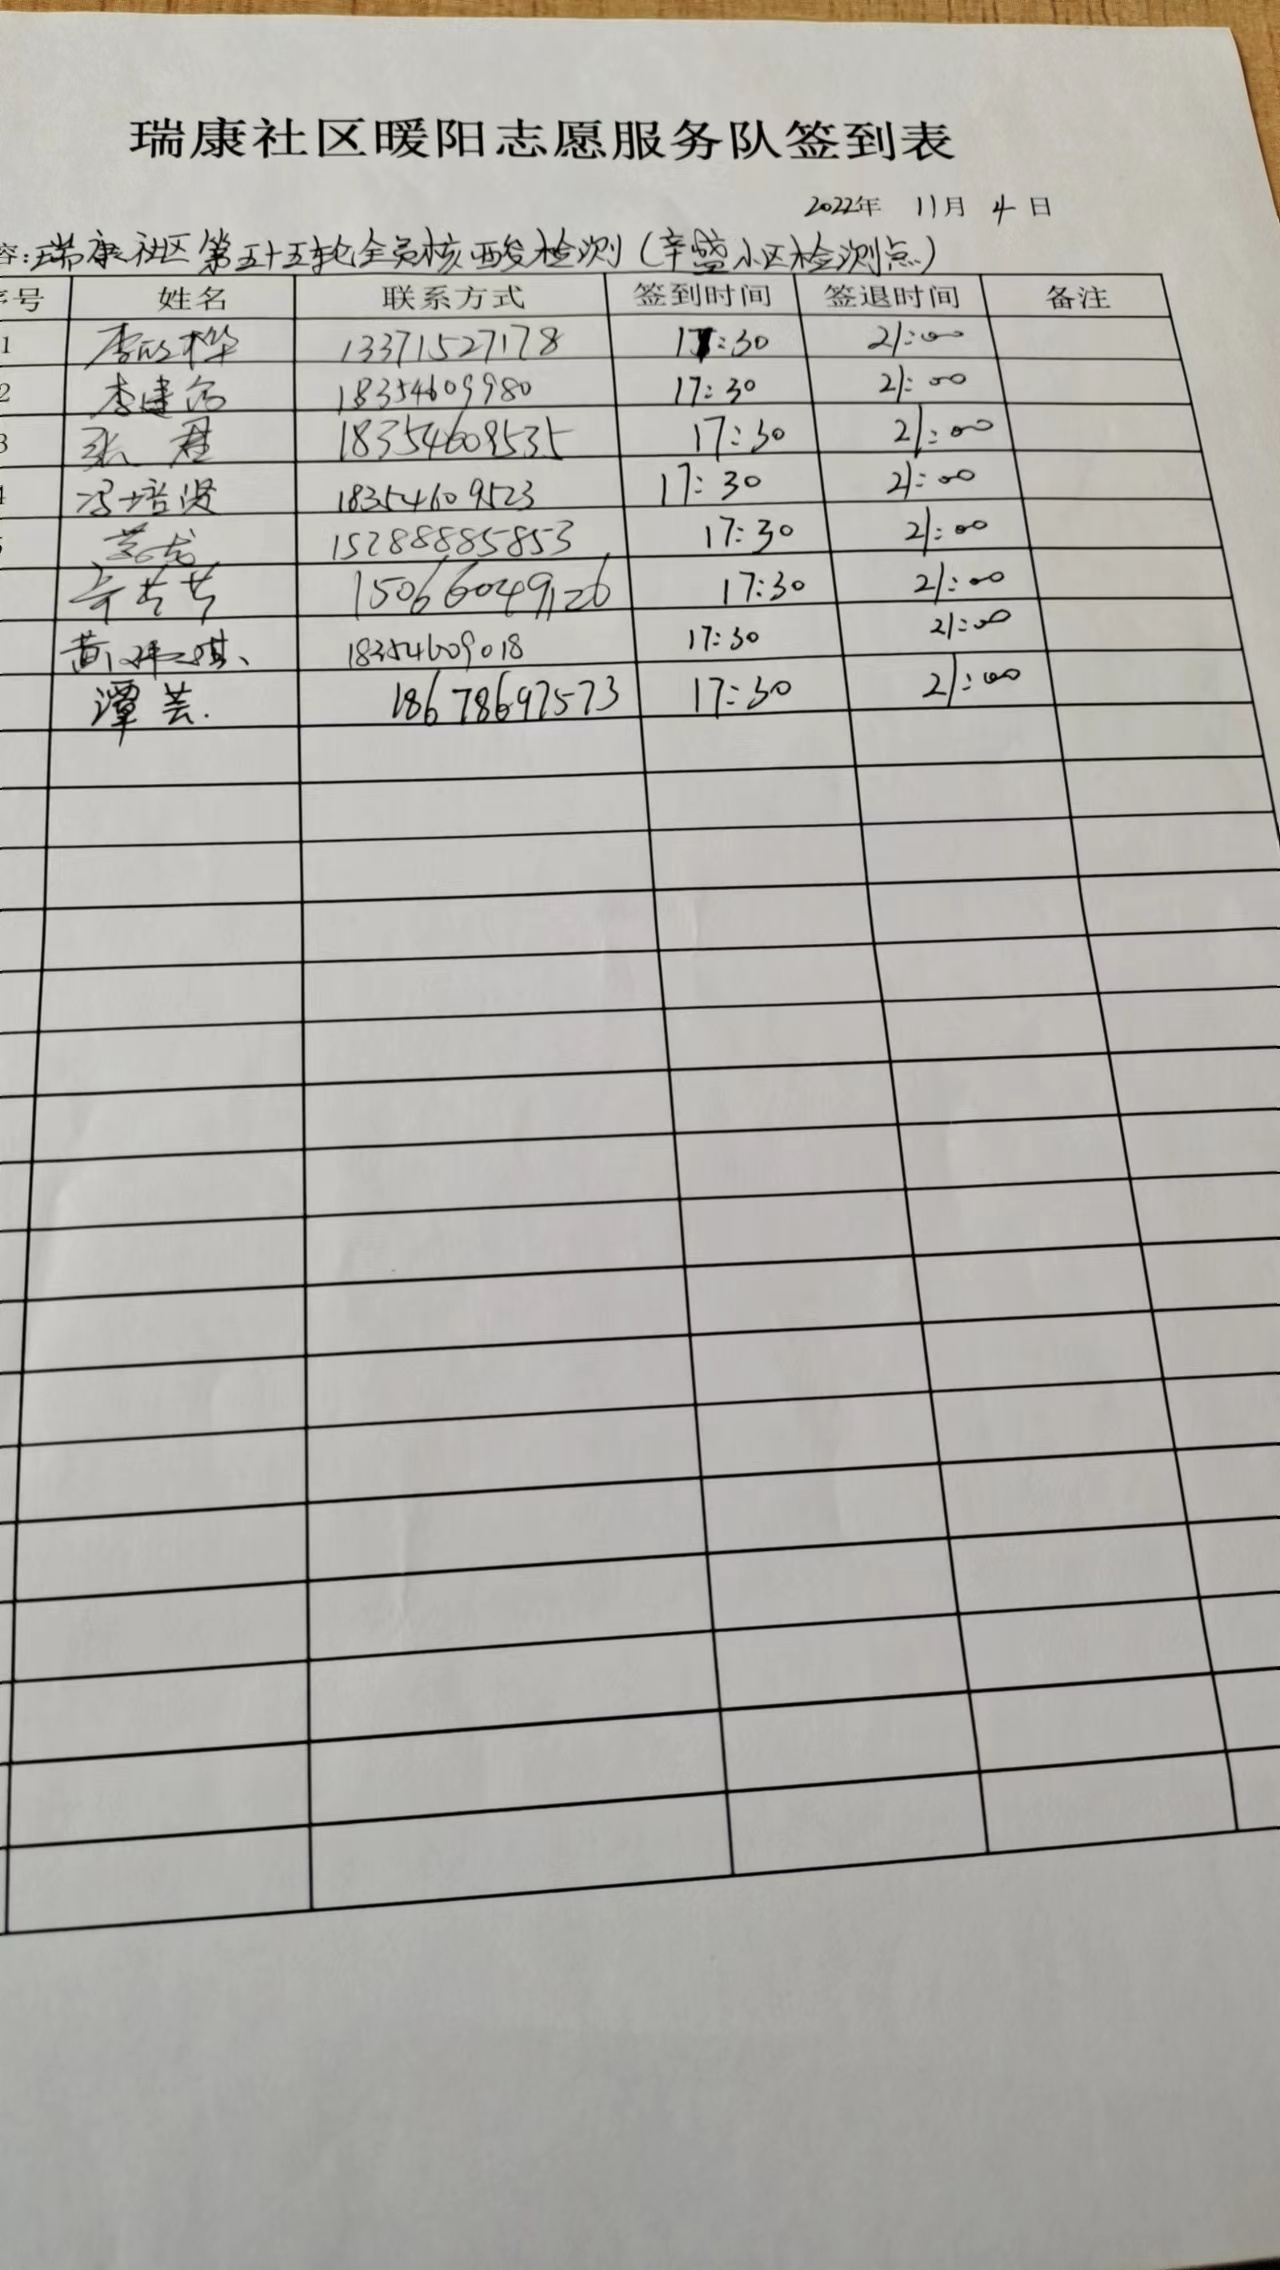 瑞康社区暖阳志愿服务队签到表
2022年 11月 4日
容:瑞康社区第五十五轮全员核酸检测(辛盛小区检测点)
序号 姓名 联系方式 签到时间 签退时间 备注
1 13371527178 17:30 21:00
2 李建 18354609980 17:30 21:00
3 张君 18354609535 17:30 21:00
4 冯培贤 18354609523 17:30 21:00
5 15288885853 17:30 21:00
15066049126 17:30 21:00
黄 18354609018 17:30 21:00
谭芸. 18678697573 17:30 21:00